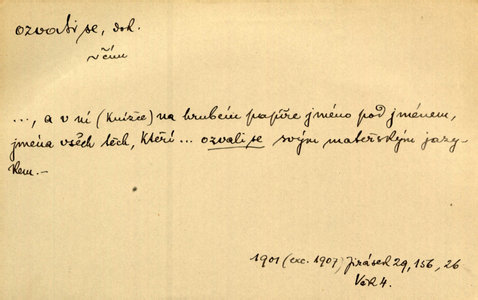 ozvati se, dok.
v čem
..., a v ní (knížce) na hrubém papíře jméno pod jménem,
jména všech těch, kteří ... ozvali se svým mateřským jazy-
kem. –
1901 (exc. 1907) Jirásek 29, 156, 26
Věk 4.